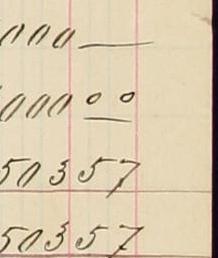 000 —
000 00
503 57
503 57